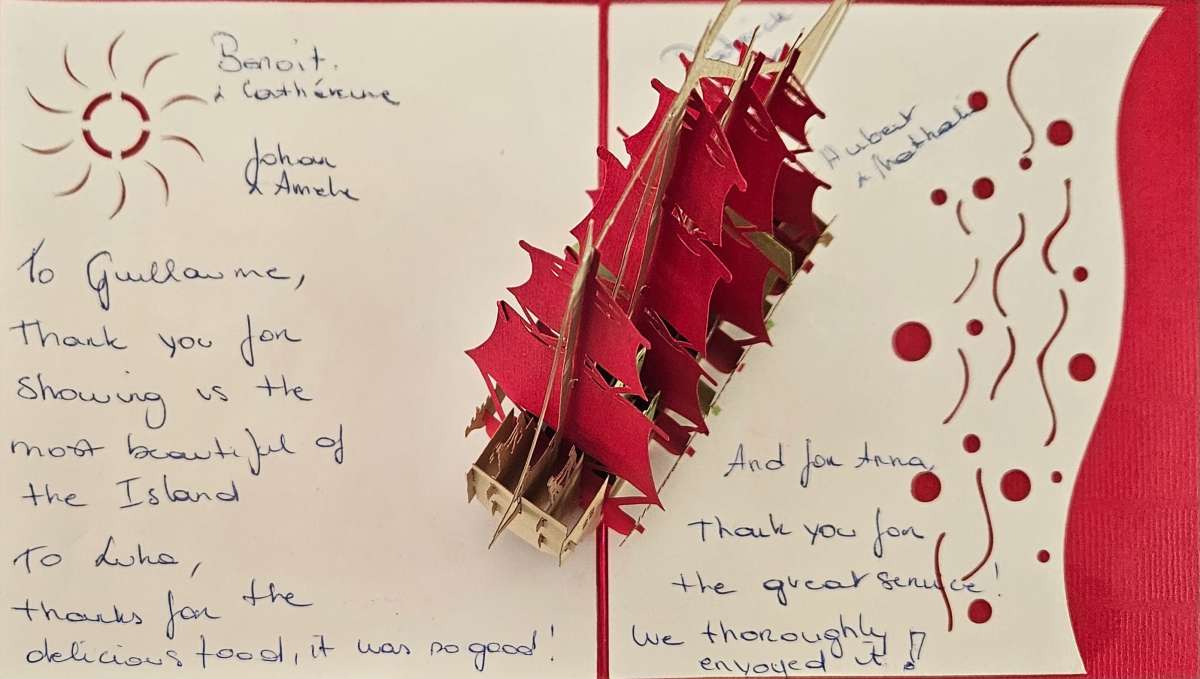 Benoit.
& Cathérine
Johan
& Amelie
To Guillaume,
Thank you for
showing us the
most beautiful of
the Island
To Luka,
thanks for the
delicious food, it was so good!
Patrick
Hubert
& Nathalie
And for Anna,
Thank you for
the great service!
We thoroughly
enyoyed it!